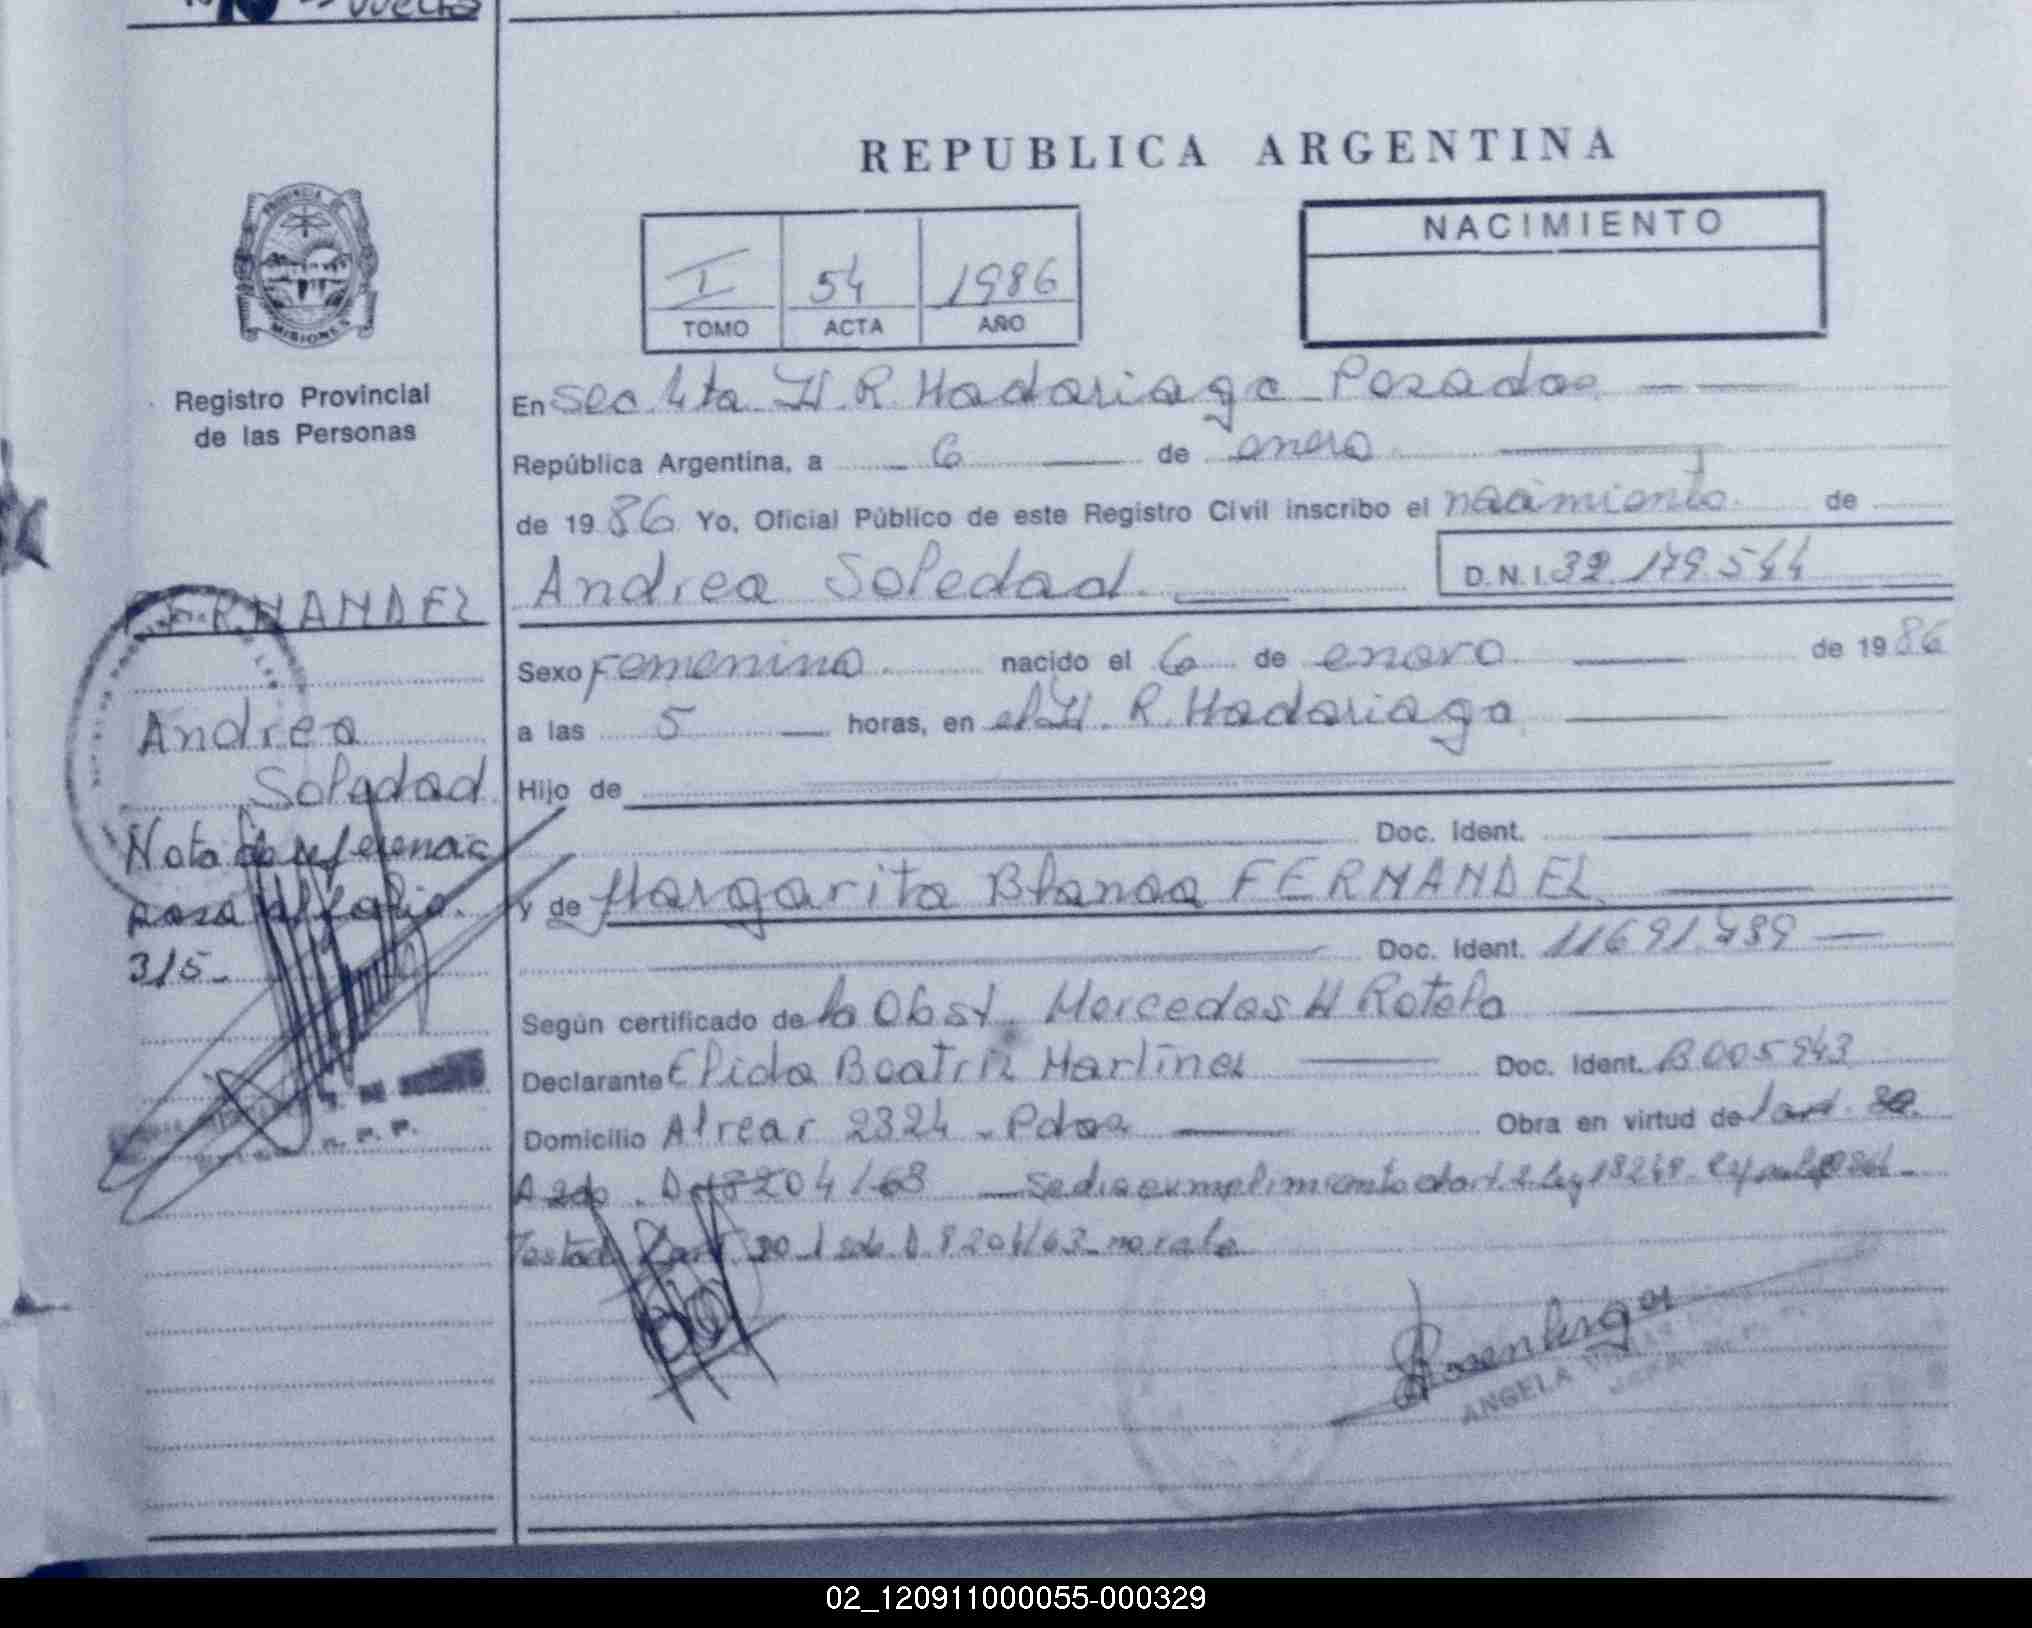 REPUBLICA ARGENTINA
NACIMIENTO
I 54 1986
TOMO ACTA AÑO
PROVINCIA DE
MISIONES
Registro Provincial
de las Personas
En Sec. 4ta H. R. Madariaga Posadas
República Argentina, a 6 de enero
de 1986 Yo, Oficial Público de este Registro Civil inscribo el nacimiento de
Andrea Soledad D.N.I. 32.179.544
FERNANDEZ
Andrea
Soledad
Nota de referencia
pasa al folio
315-
Sexo femenino nacido el 6 de enero de 1986
a las 5 horas, en el H. R. Madariaga
Hijo de
Doc. Ident.
y de Margarita Blanca FERNANDEZ
Doc. Ident. 11691.789
Según certificado de la Obst. Mercedes H Rotela
Declarante Elida Beatriz Martinez Doc. Ident. B005943
Domicilio Alvear 2324 - Pdas Obra en virtud de l art. 30
8204/63 Se dio cumplimiento
Testado l art. 30 8204/63 no vale
ANGELA
02_120911000055-000329